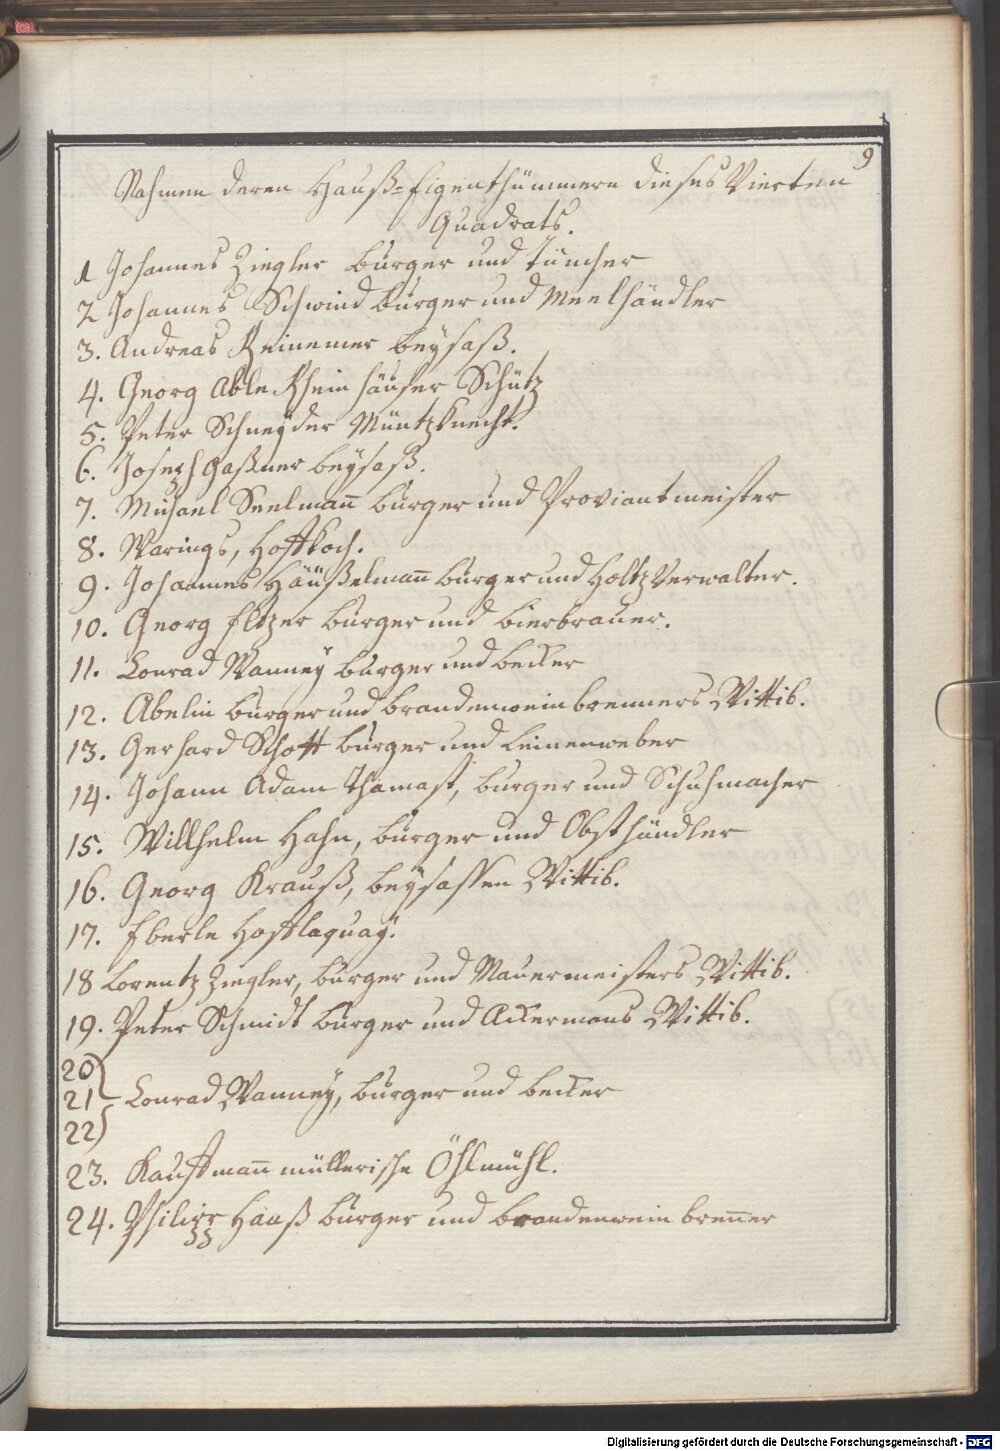 9
Nahmen deren Hauß=Eigenthümmern dieses Vierten
Quadrats.
1 Johannes Ziegler bürger und Tüncher
2 Johannes Schwind bürger und Meelhändler
3. Andreas Reinemer beysaß.
4. Georg Able Rheinhäuser Schütz
5. Peter Schneyder Müntzknecht.
6. Joseph Gaßner beysaß.
7. Michael Seelmañ bürger und Proviantmeister
8. Marings, Hoffkoch.
9. Johannes Häüßelmañ bürger und Holtz Verwalter.
10. Georg Eltzer bürger und bierbrauer.
11. Conrad Manney bürger und becker
12. Abelin bürger und brandenwein brenners Wittib.
13. Gerhard Schott bürger und Leinenweber
14. Johann Adam Thamast, bürger und Schuhmacher
15. Willhelm Hahn, bürger und Obsthändler
16. Georg Krauß, beysassen Wittib.
17. Eberle Hofflaquay.
18 Lorentz Ziegler, bürger und Mauermeisters Wittib.
19. Peter Schmidt bürger und Ackermans Wittib.
20
21 Conrad Manney, bürger und becker
22
23. Kauffmañ müllerische Öhlmühl.
24. Philipp Haaß bürger und brandenwein breñer
Digitalisierung gefördert durch die Deutsche Forschungsgemeinschaft - DFG